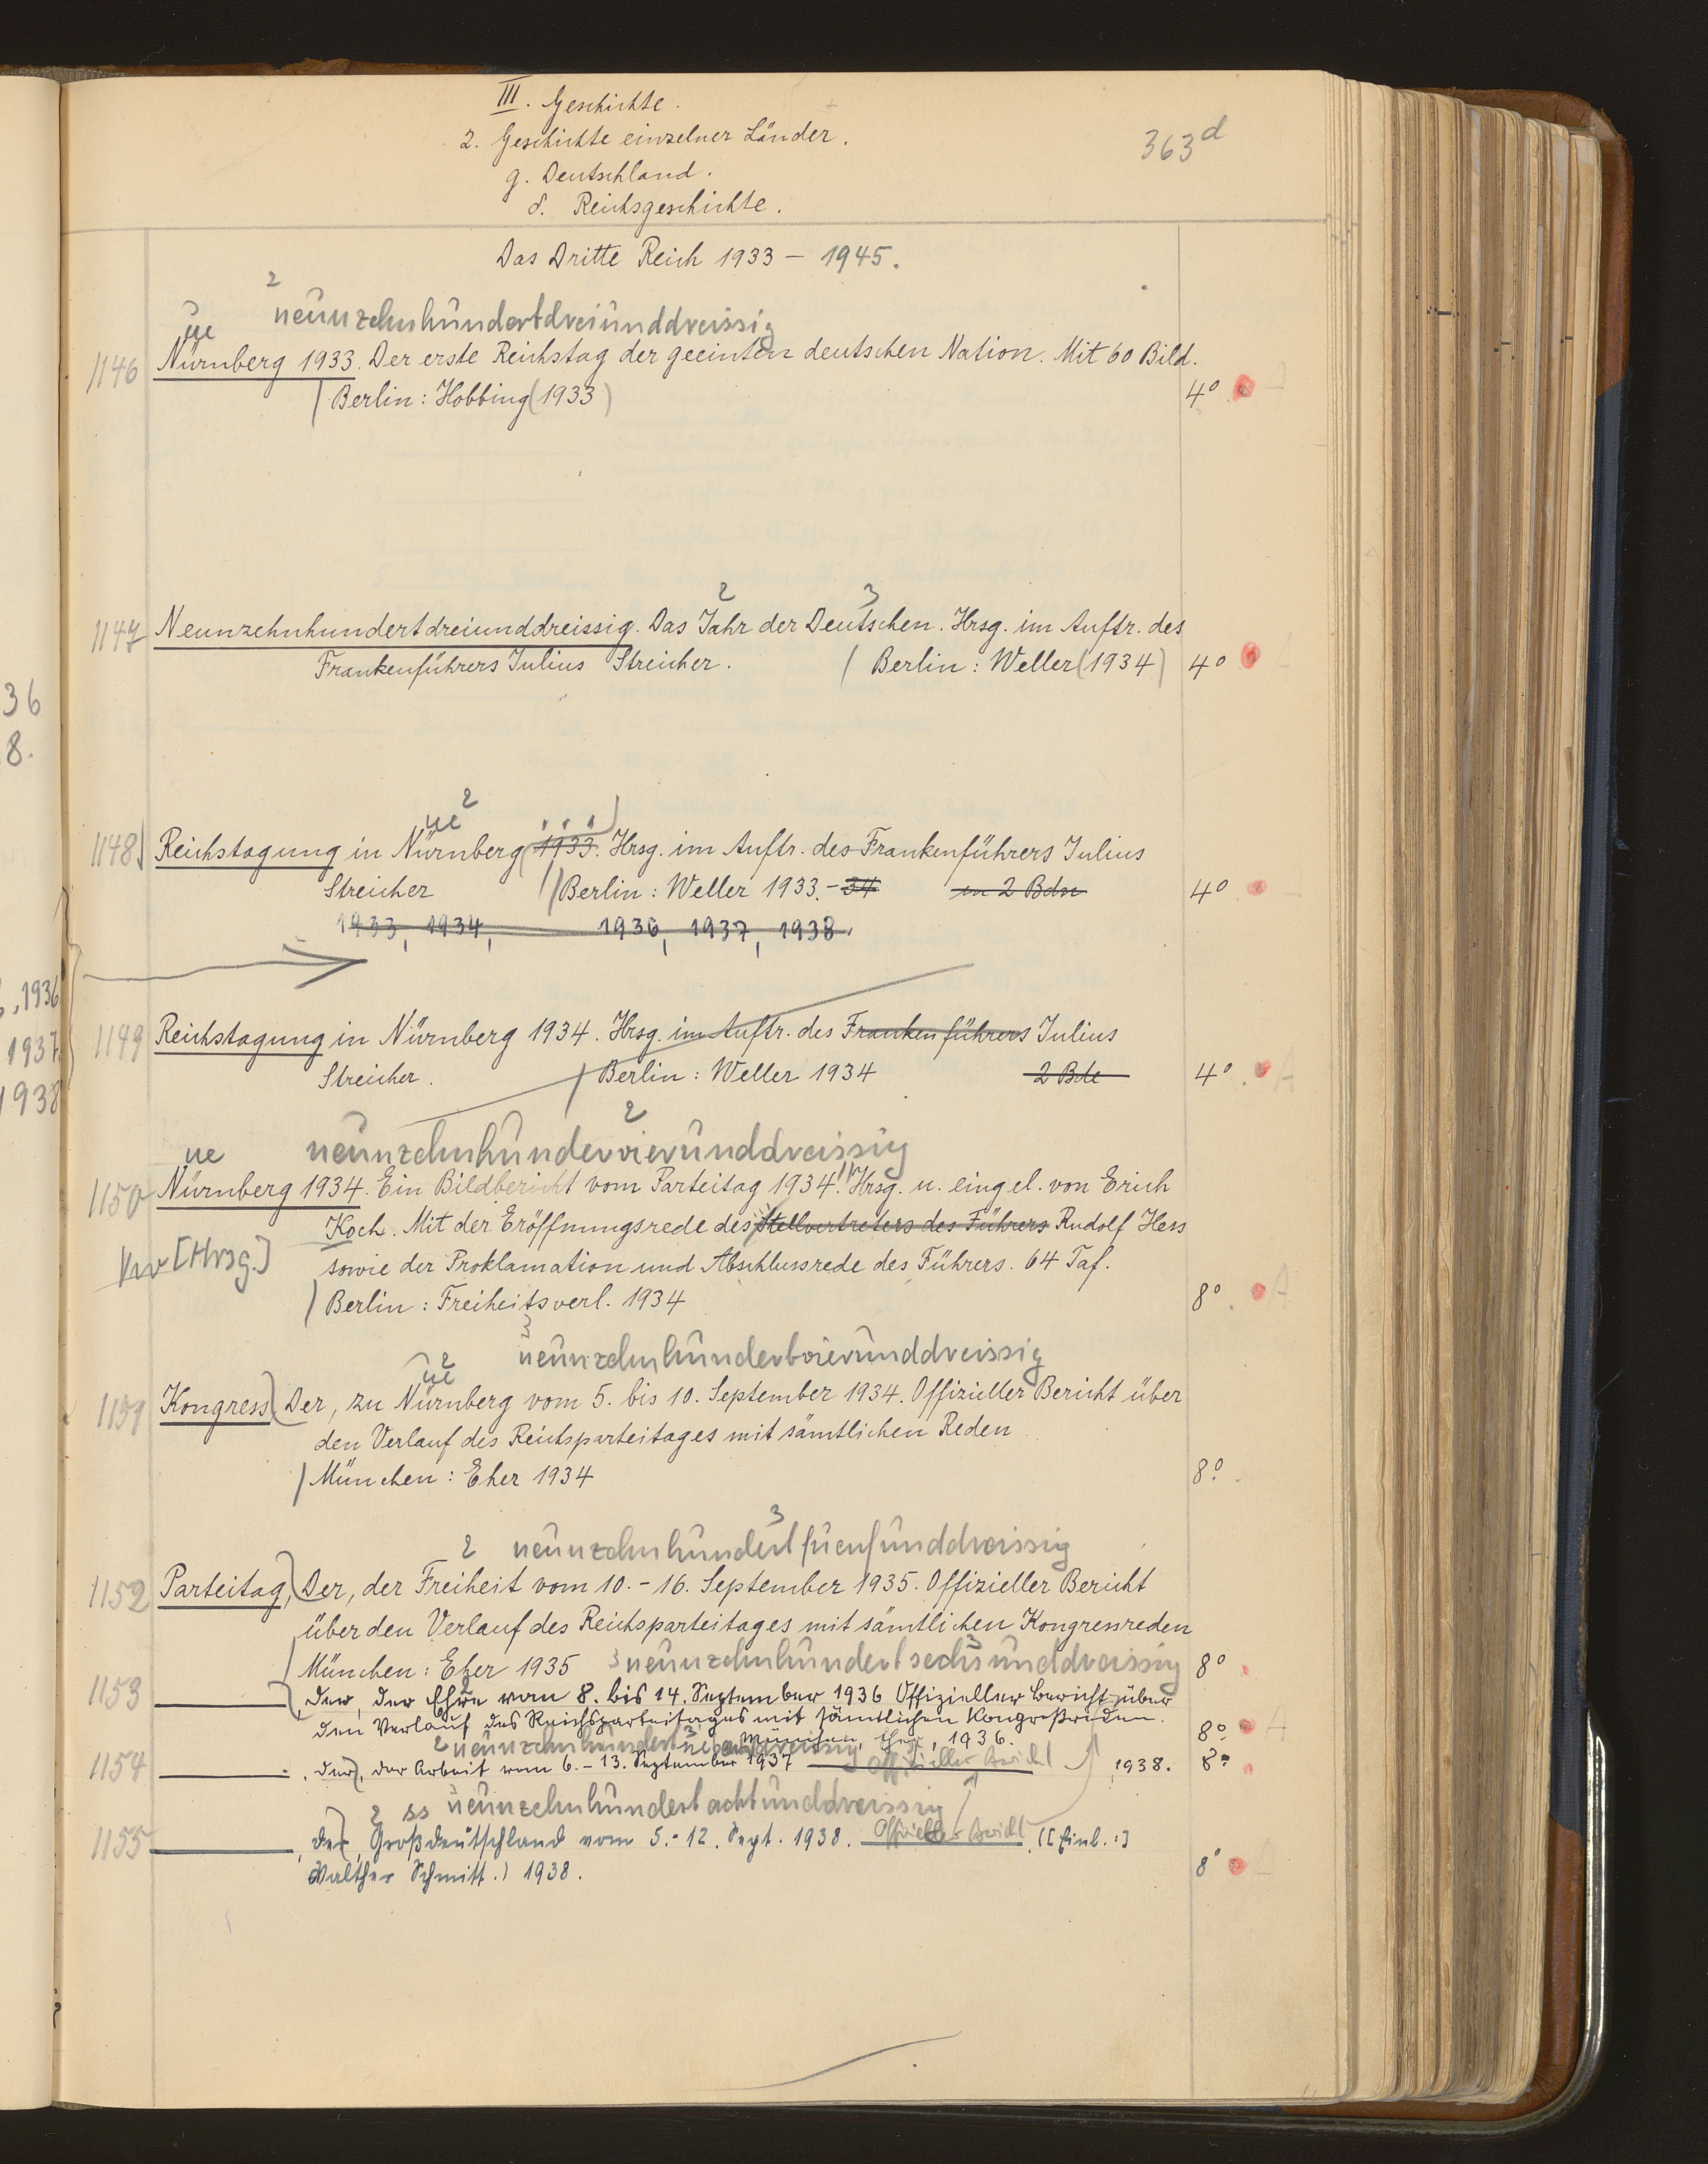 III. Geschichte.
2. Geschichte einzelner Länder.
363d
g. Deutschland.
δ. Reichsgeschichte.
Das Dritte Reich 1933 – 1945.
2
neunzehnhundertdreiunddreissig
ue
1146 Nürnberg 1933. Der erste Reichstag der geeinten deutschen Nation. Mit 60 Bild.
Berlin: Hobbing (1933) 4°
2 3
1147 Neunzehnhundertdreiunddreissig. Das Jahr der Deutschen. Hrsg. im Auftr. des
Frankenführers Julius Streicher. Berlin: Weller (1934) 4°
36
8.
ue 2
1148 Reichstagung in Nürnberg (1933. Hrsg. im Auftr. des Frankenführers Julius
Streicher Berlin: Weller 1933.–34 in 2 Bdn 4°
1933, 1934, 1936, 1937, 1938.
, 1936
1937.
1938
1149 Reichstagung in Nürnberg 1934. Hrsg. im Auftr. des Frankenführers Julius
Streicher. Berlin: Weller 1934 2 Bde 4° A
2
ue neunzehnhundervierunddreissig
1150 Nürnberg 1934. Ein Bildbericht vom Parteitag 1934. Hrsg. u. eingel. von Erich
Koch. Mit der Eröffnungsrede des Stellvertreters des Führers Rudolf Hess
[Hrsg.] sowie der Proklamation und Abschlussrede des Führers. 64 Taf.
Berlin: Freiheitsverl. 1934 8° A
3
neunzehnhundertvierunddreissig
ue 2
1151 Kongress, Der, zu Nürnberg vom 5. bis 10. September 1934. Offizieller Bericht über
den Verlauf des Reichsparteitages mit sämtlichen Reden
München: Eher 1934 8°.
3
2 neunzehnhundertfuenfunddreissig
1152 Parteitag, Der, der Freiheit vom 10.–16. September 1935. Offizieller Bericht
über den Verlauf des Reichsparteitages mit sämtlichen Kongressreden
München: Eher 1935 3 neunzehnhundertsechsunddreissig 8°
1153 , Der, der Ehre vom 8. bis 14. September 1936 Offizieller Bericht über
den Verlauf des Reichsparteitages mit sämtlichen Kongreßreden.
München, Eher, 1936. 8° A
2 neunzehnhundert
1154 , Der, der Arbeit vom 6.–13. September 1937 Offizieller Bericht 1938. 8°
2 ss neunzehnhundertachtunddreissig
1155 , Der, Großdeutschland vom 5.–12. Sept. 1938. Offizieller Bericht. ([Einl.:]
Walther Schmitt.) 1938. 8°